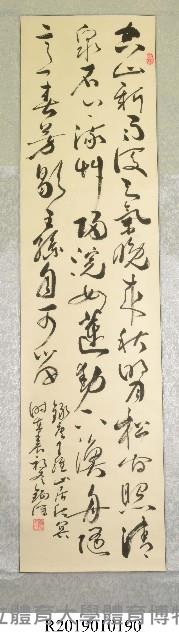 空山新雨後天氣晚來秋明月松間照清
泉石上流竹喧歸浣女蓮動下漁舟隨
意春芳歇王孫自可留
錄唐王維山居秋暝
立體育大學體育博
R2019010190